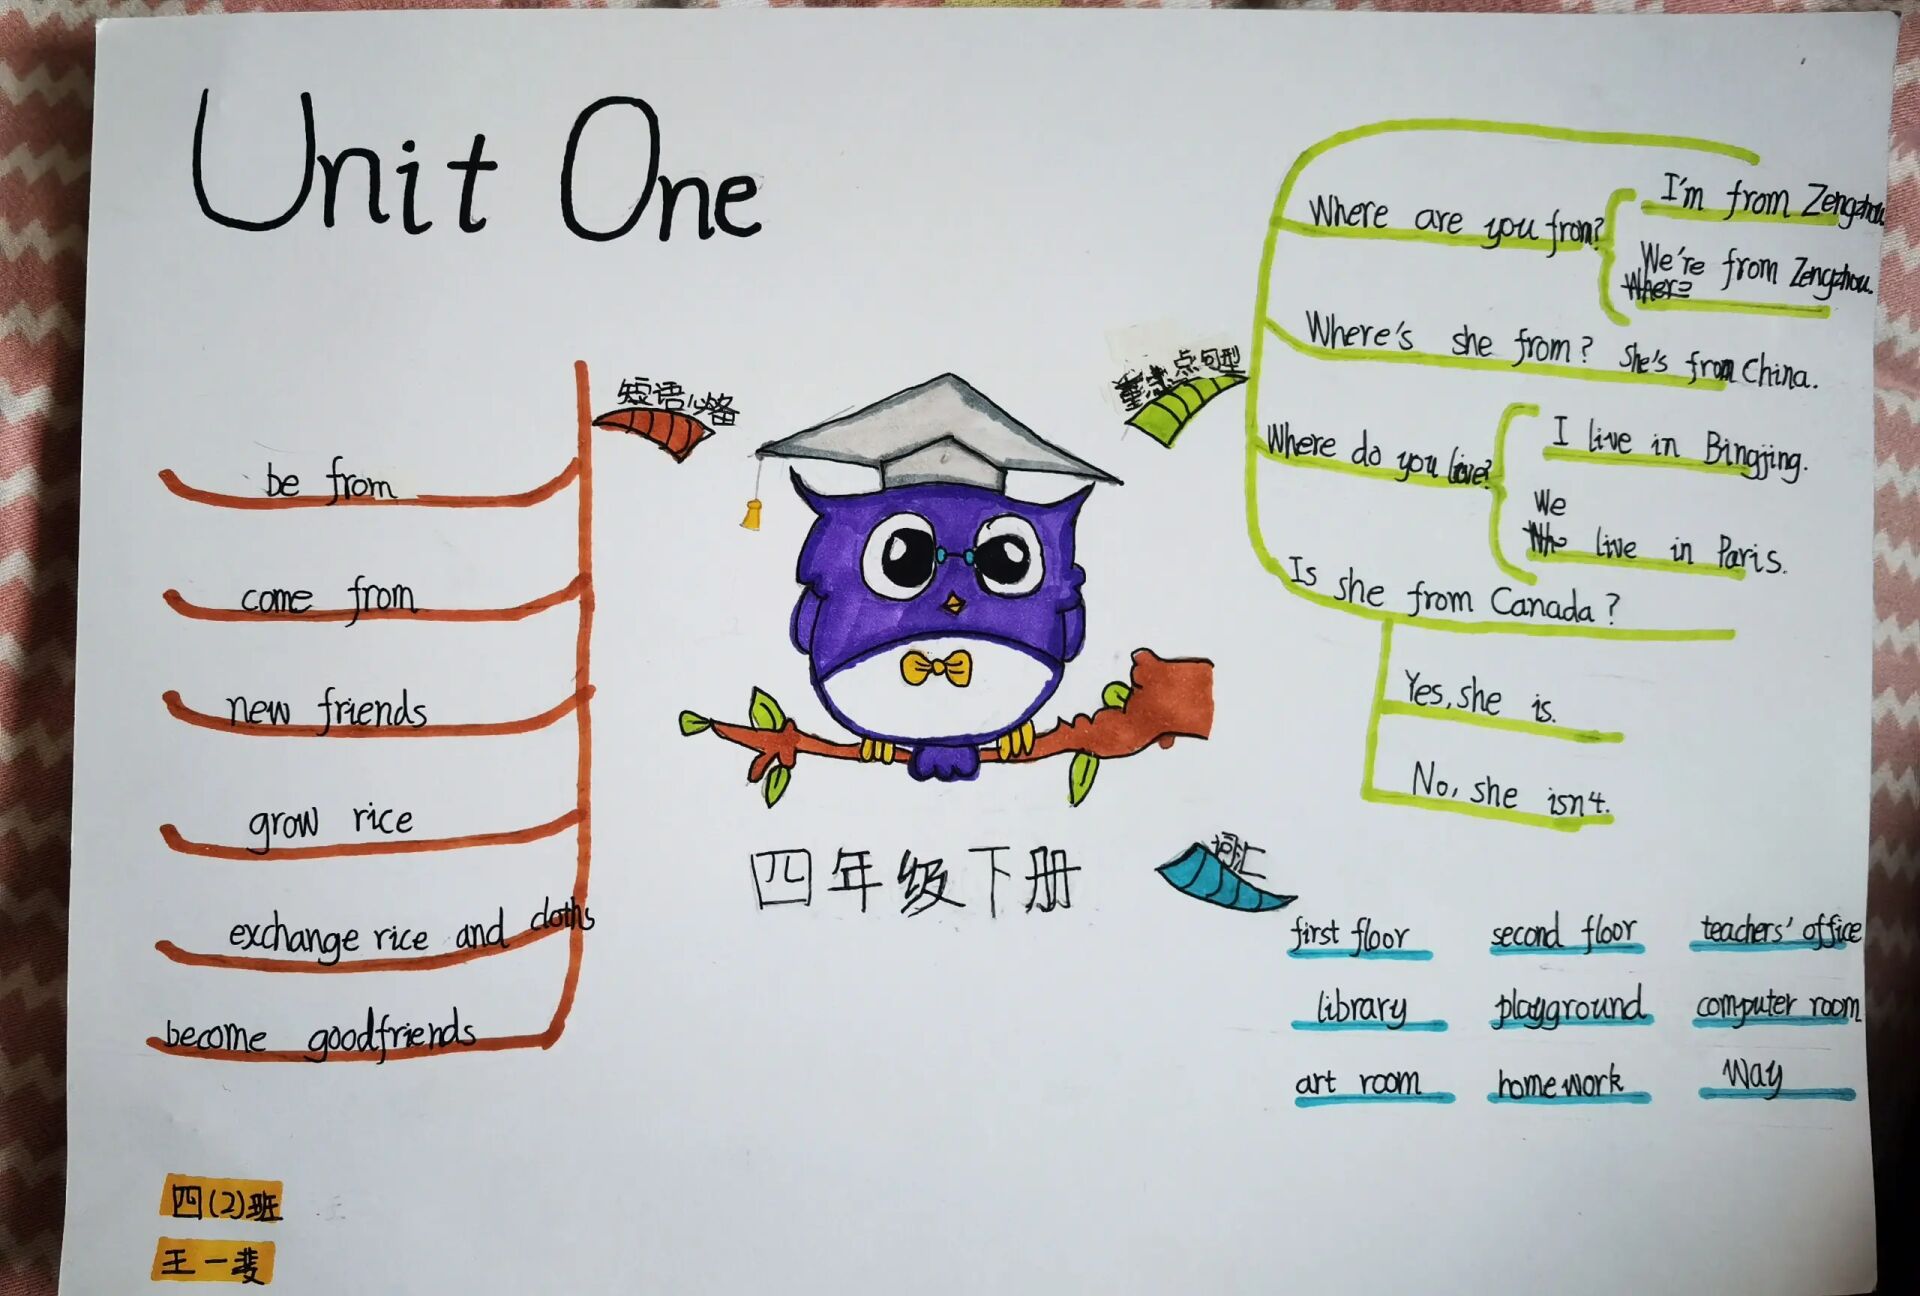 Unit One
短语必备
be from
come from
new friends
grow rice
exchange rice and cloths
become goodfriends
四年级下册
重点句型
Where are you from?
I'm from Zengzhou.
We're from Zengzhou.
Where's she from? She's from China.
Where do you live?
I live in Bingjing.
We live in Paris.
Is she from Canada?
Yes, she is.
No, she isn't.
词汇
first floor second floor teachers' office
library playground computer room
art room homework way
四(2)班
王一